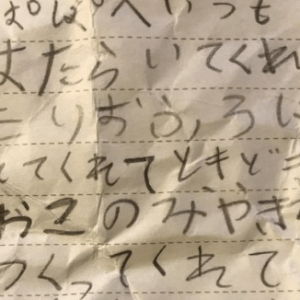 ぱぱへいつも
はたらいてくれ
たりおふろに
てくれてときどき
おこのみやき
つくってくれて